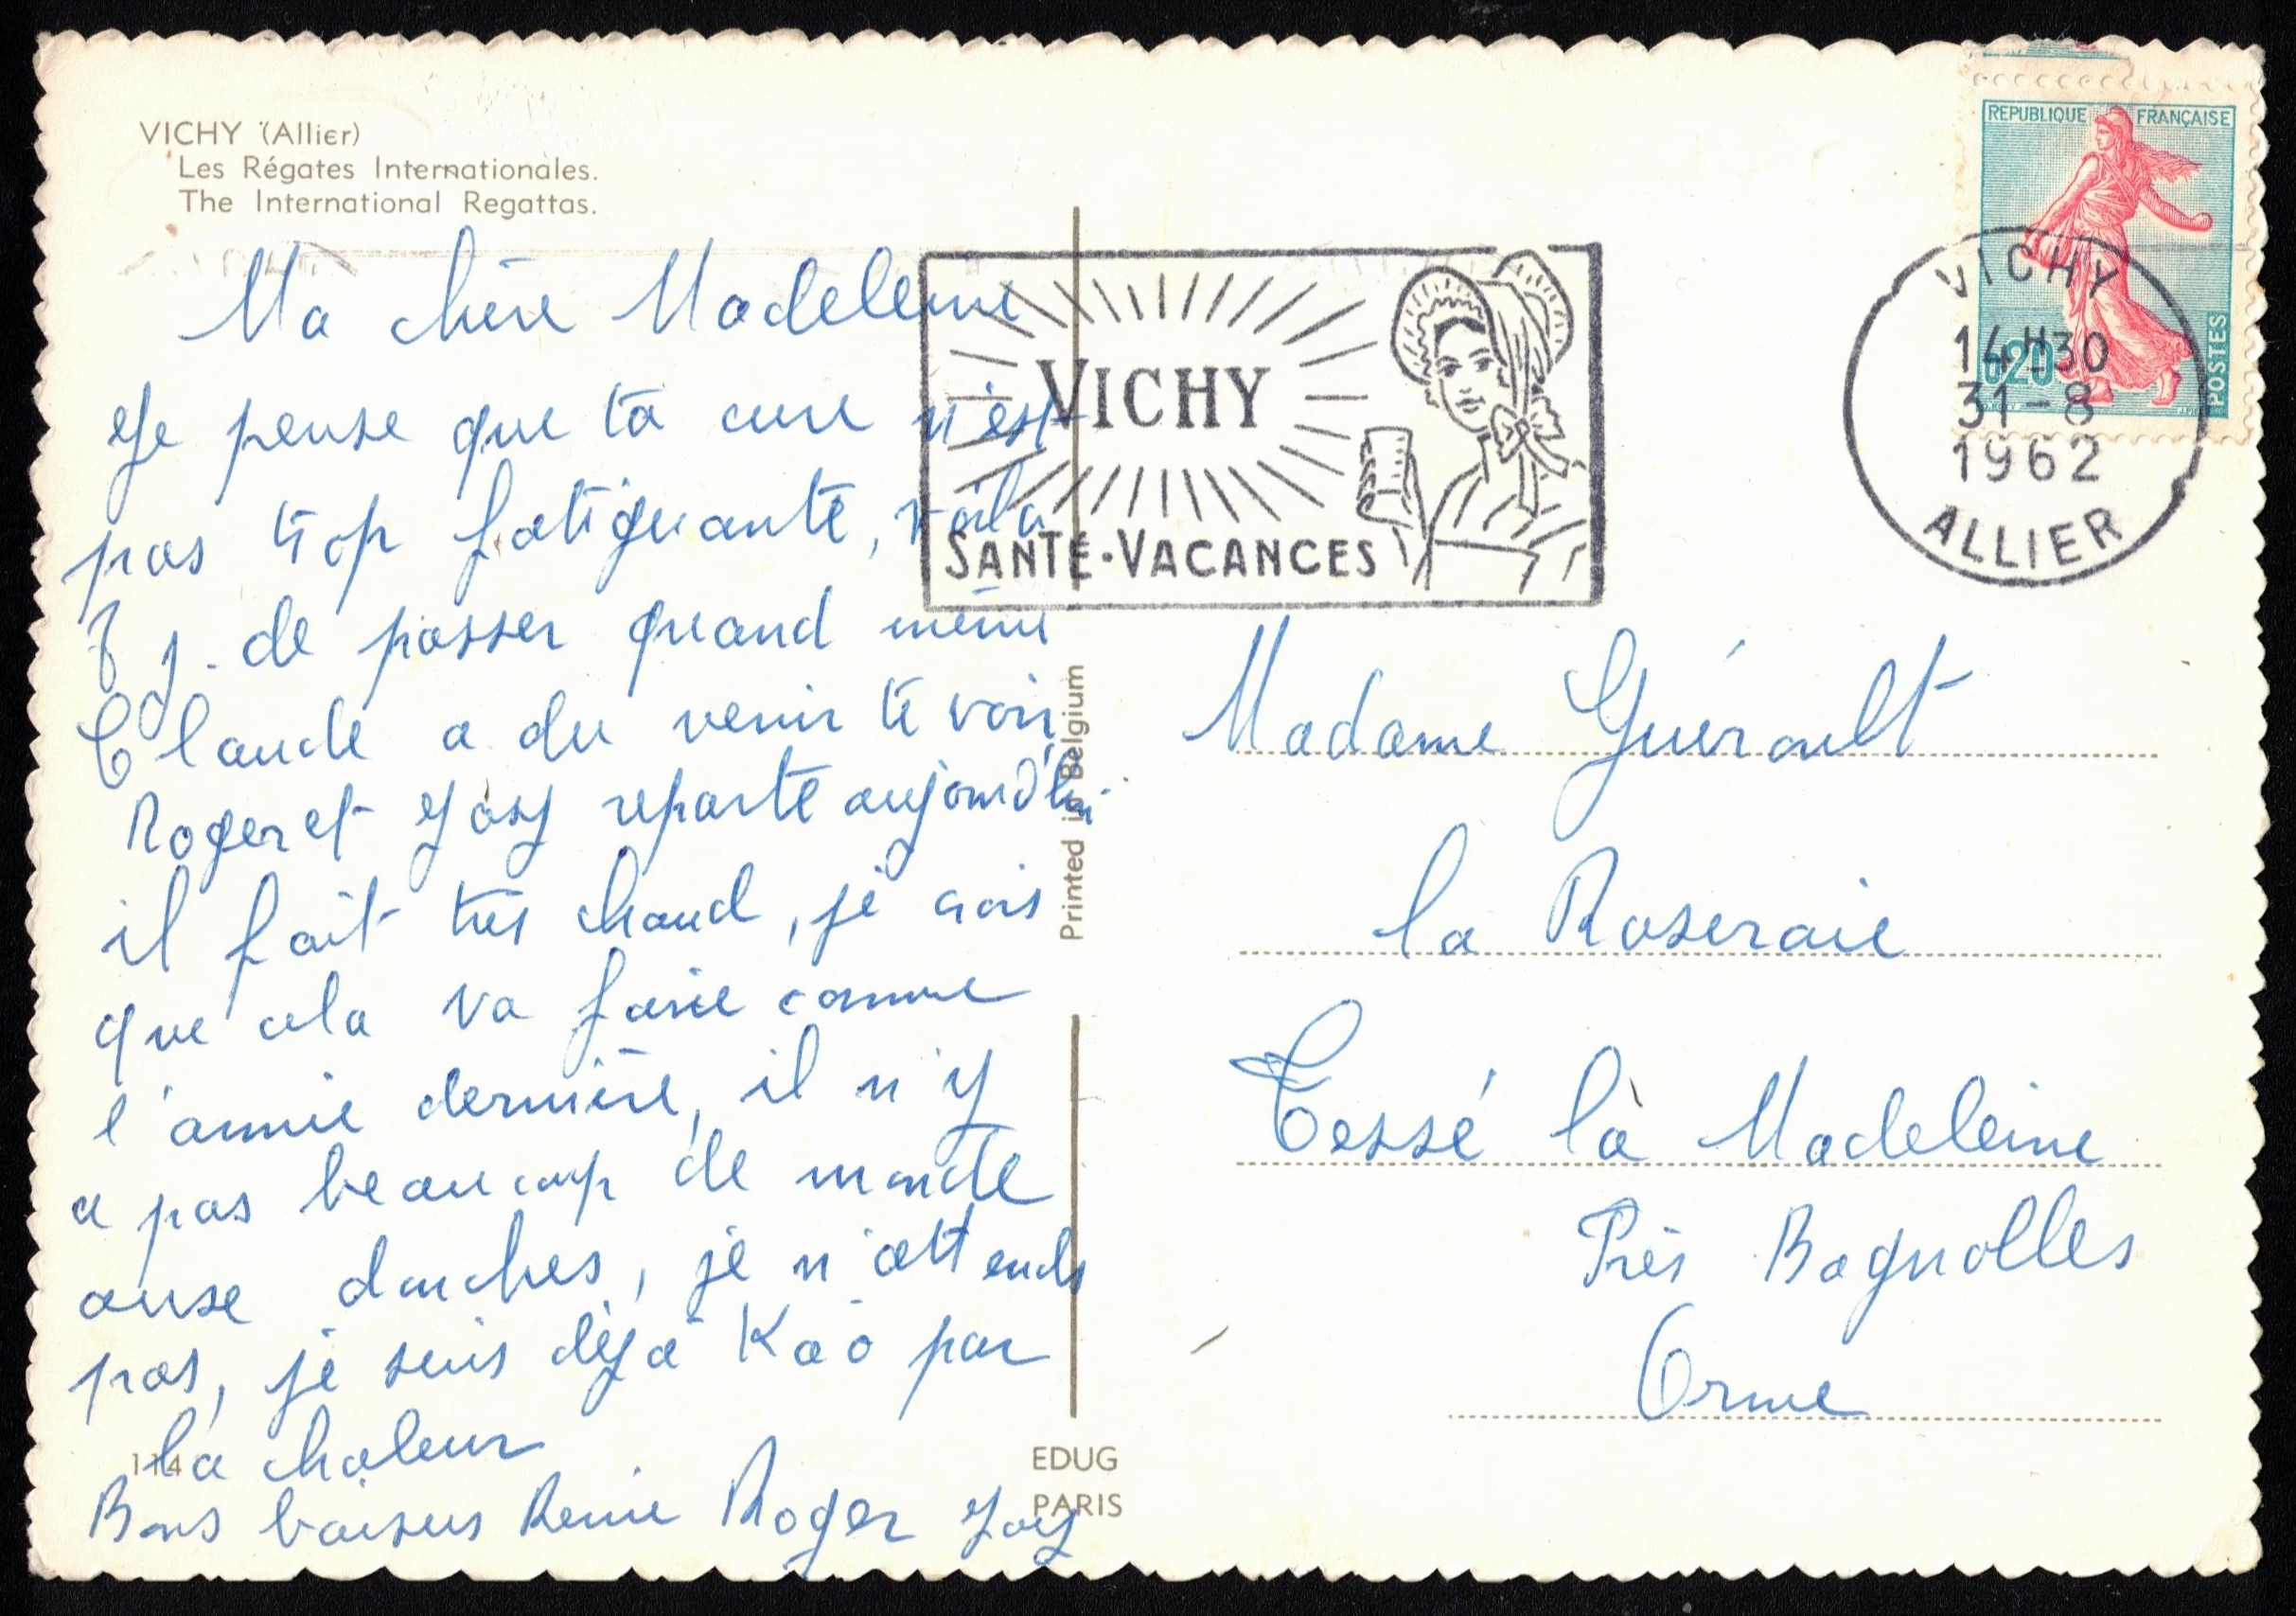 VICHY (Allier)
Les Régates Internationales.
The International Regattas.
Ma chère Madeleine
Je pense que ta cure n'est
pas trop fatiguante, voila
8 j. de passer quand même
Claude a du venir te voir
Roger et Josy reparte aujourd'hui
il fait très chaud, je crois
que cela va faire comme
l'année dernière, il n'y
a pas beaucoup de monde
aux douches, je n'attends
pas, je suis déjà Kao par
la chaleur
Bons baisers Renée Roger Josy
114
Printed in Belgium
EDUG
PARIS
VICHY
SANTÉ-VACANCES
REPUBLIQUE FRANÇAISE
0,20
POSTES
VICHY
14H30
31-8
1962
ALLIER
Madame Guérault
la Roseraie
Tessé la Madeleine
Près Bagnolles
Orne